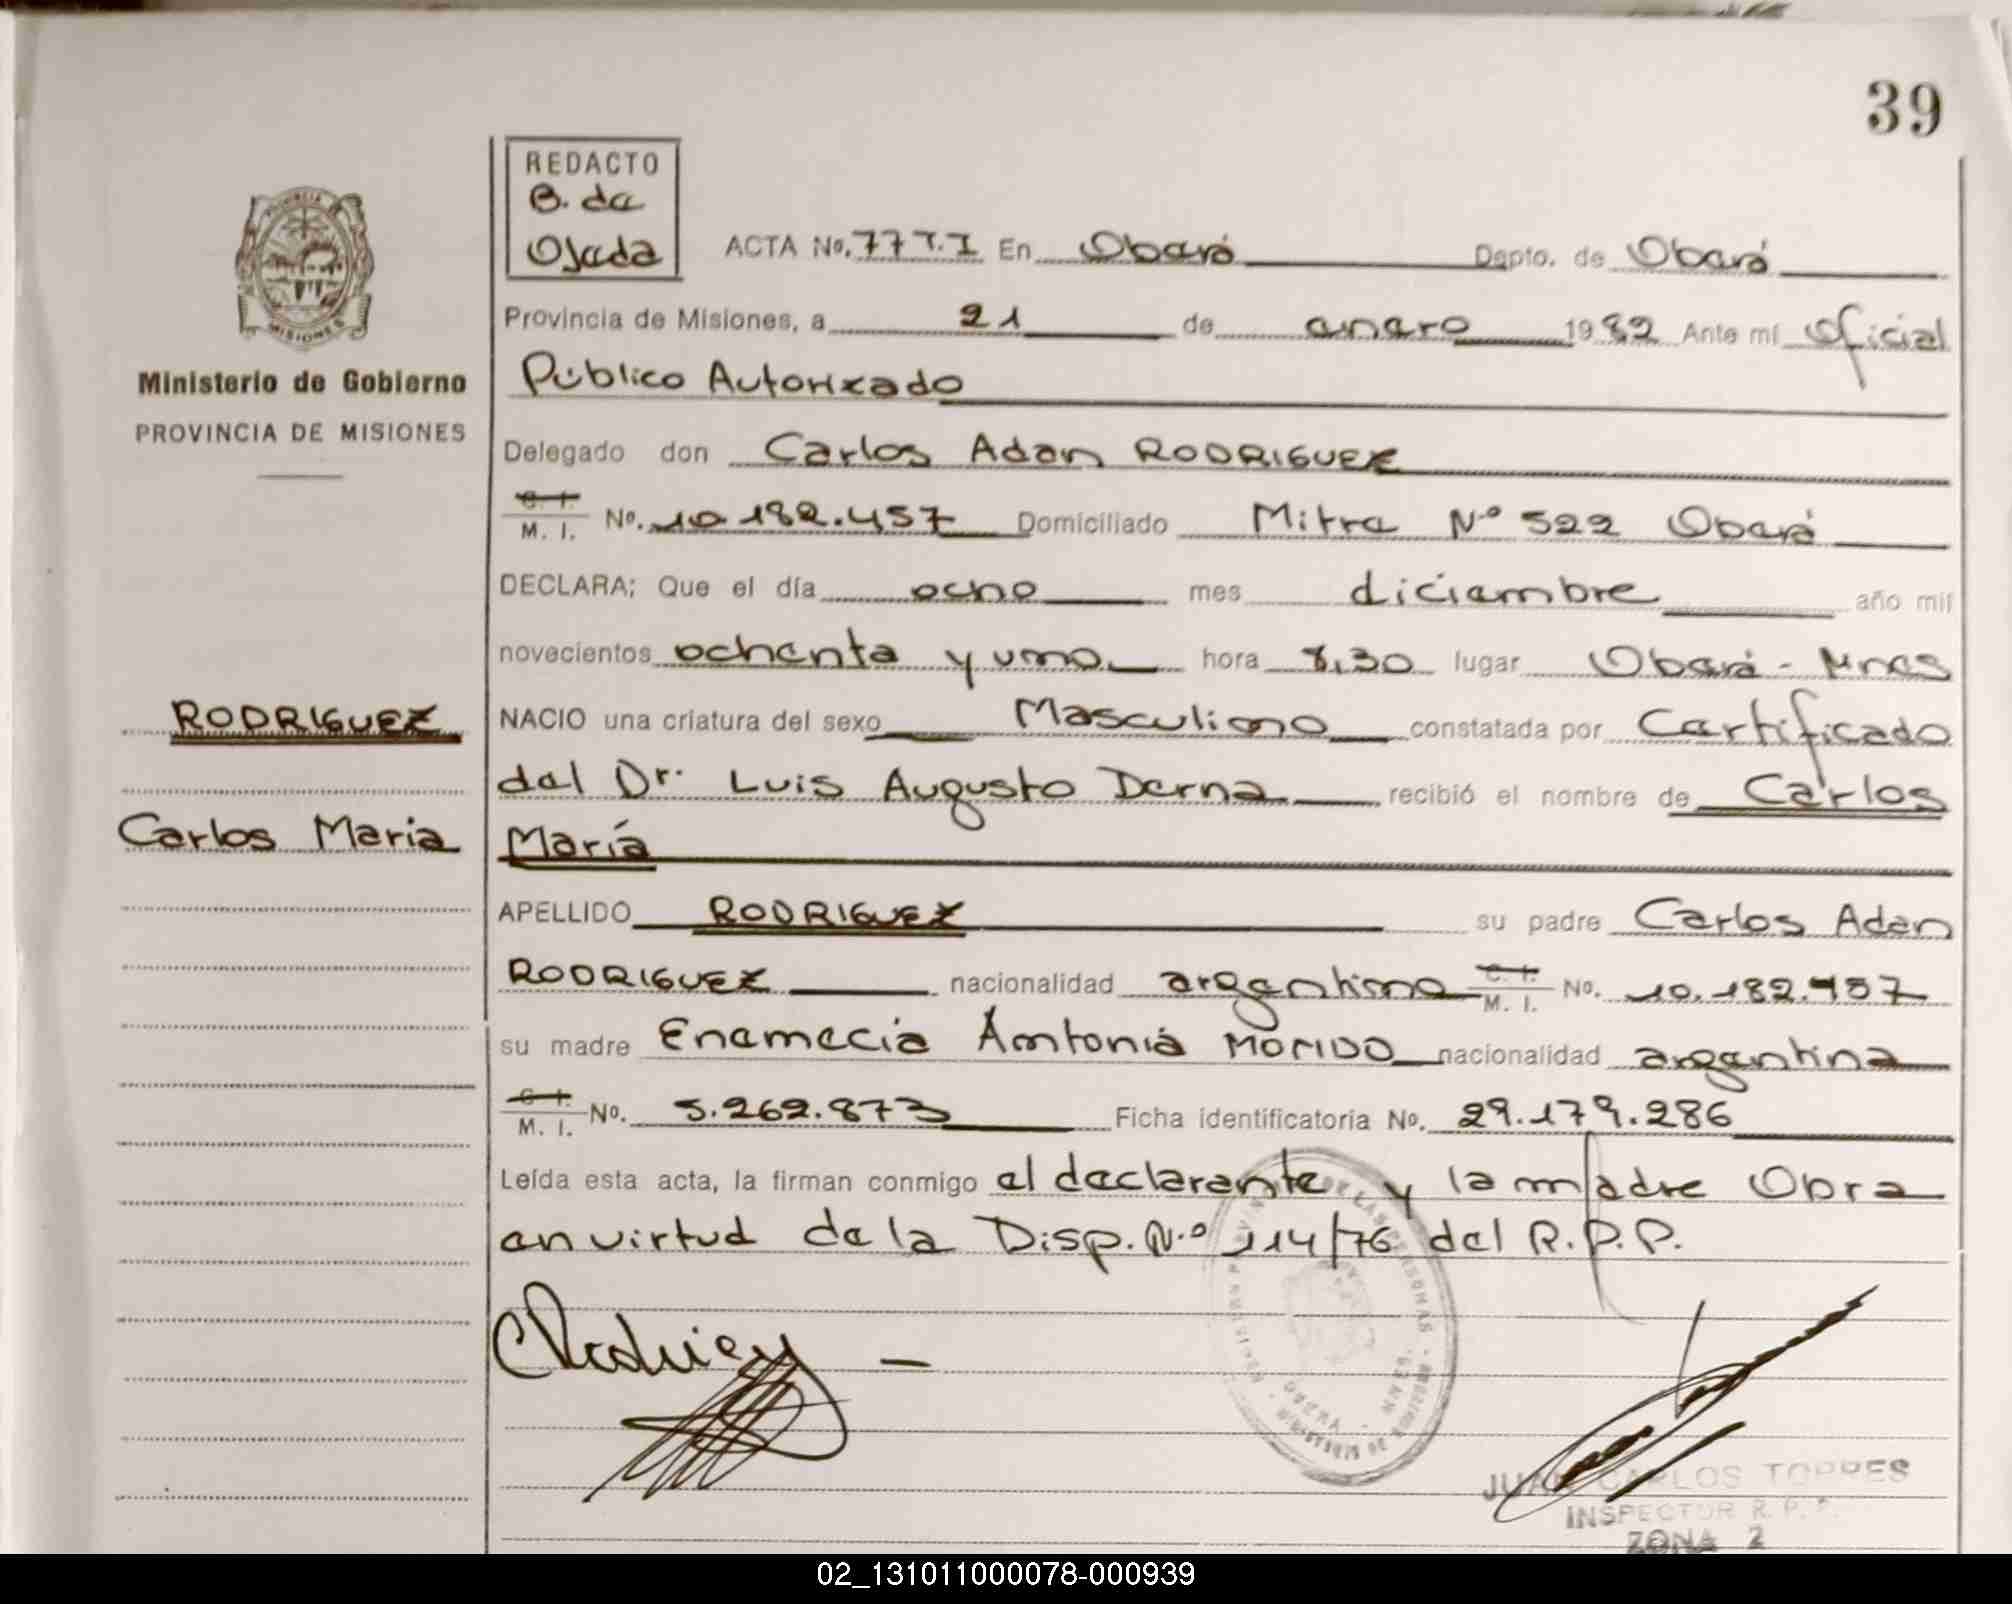 39
REDACTO
B. de
Ojeda
ACTA No. 77 T.I En Oberá Dapto. de Oberá
Provincia de Misiones, a 21 de enero 1982 Ante mí Oficial
Público Autorizado
Delegado don Carlos Adan RODRIGUEZ
C. I.
M. I. No. 10.182.457 Domiciliado Mitre Nº 522 Oberá
DECLARA; Que el día ocho mes diciembre año mil
novecientos ochenta y uno hora 8,30 lugar Oberá - Mnes
NACIO una criatura del sexo Masculino constatada por Certificado
del Dr. Luis Augusto Derna recibió el nombre de Carlos
María
APELLIDO RODRIGUEZ su padre Carlos Adan
RODRIGUEZ nacionalidad argentino C. I. M. I. No. 10.182.457
su madre Antonia nacionalidad argentina
C. I.
M. I. No. 5.262.873 Ficha identificatoria No. 29.179.286
Leída esta acta, la firman conmigo el declarante y la madre Obra
en virtud de la Disp. N.º 114/76 del R.P.P.
JUAN CARLOS TORRES
INSPECTOR R. P. P.
ZONA 2
MISIONES
Ministerio de Gobierno
PROVINCIA DE MISIONES
RODRIGUEZ
Carlos Maria
02_131011000078-000939